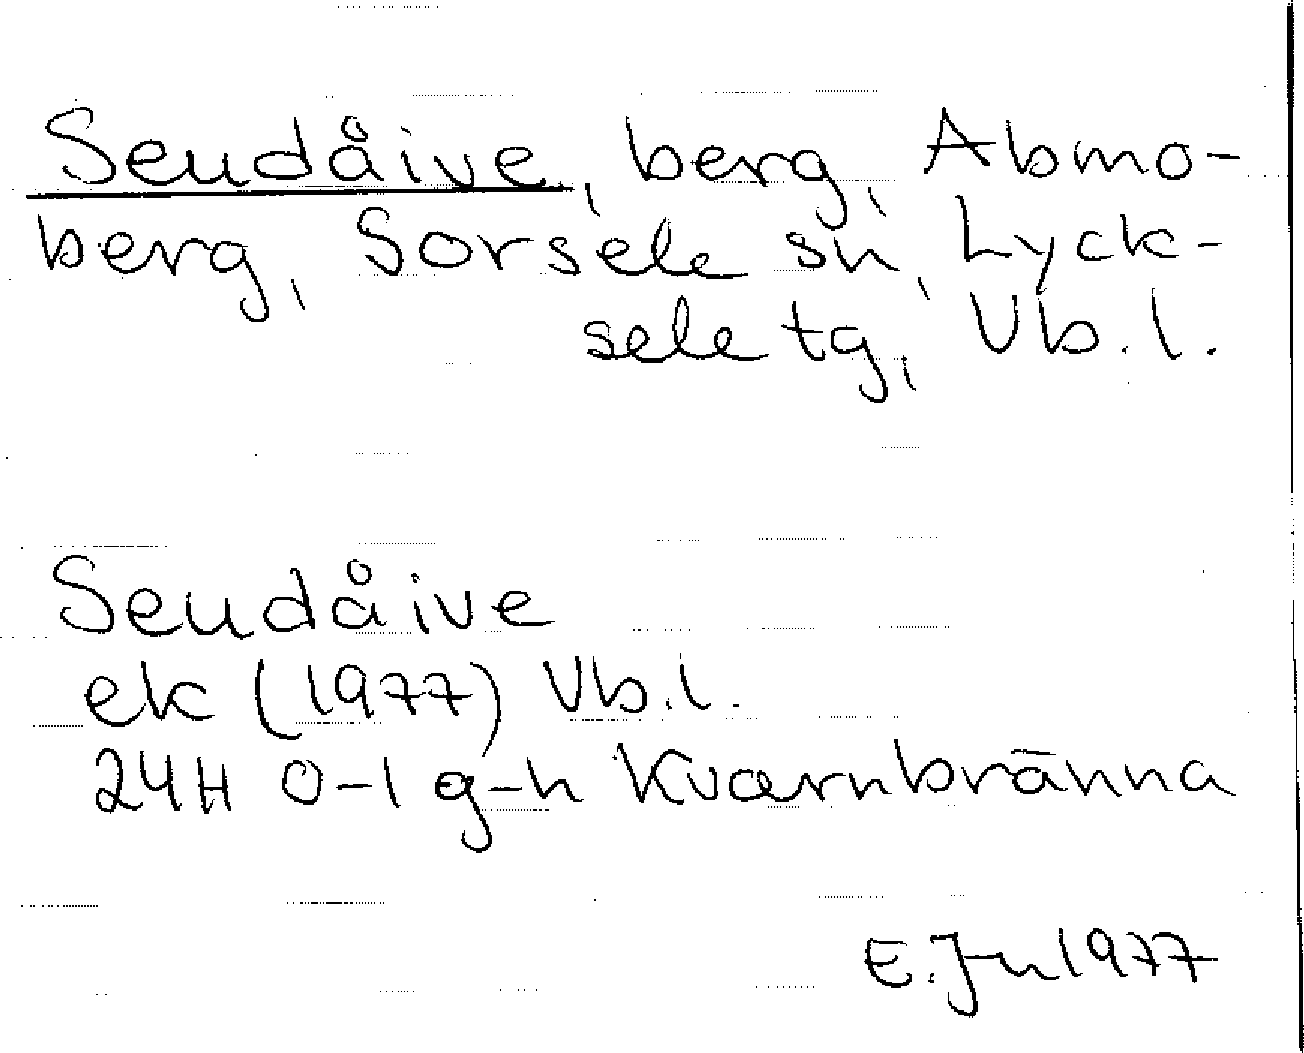 Seudåive, berg, Abmo-
berg, Sorsele sn, Lyck-
sele tg, Vb.l.
Seudåive
ek (1977) Vb.l.
24H 0-1 g-h Kvarnbränna
E.Jn 1977